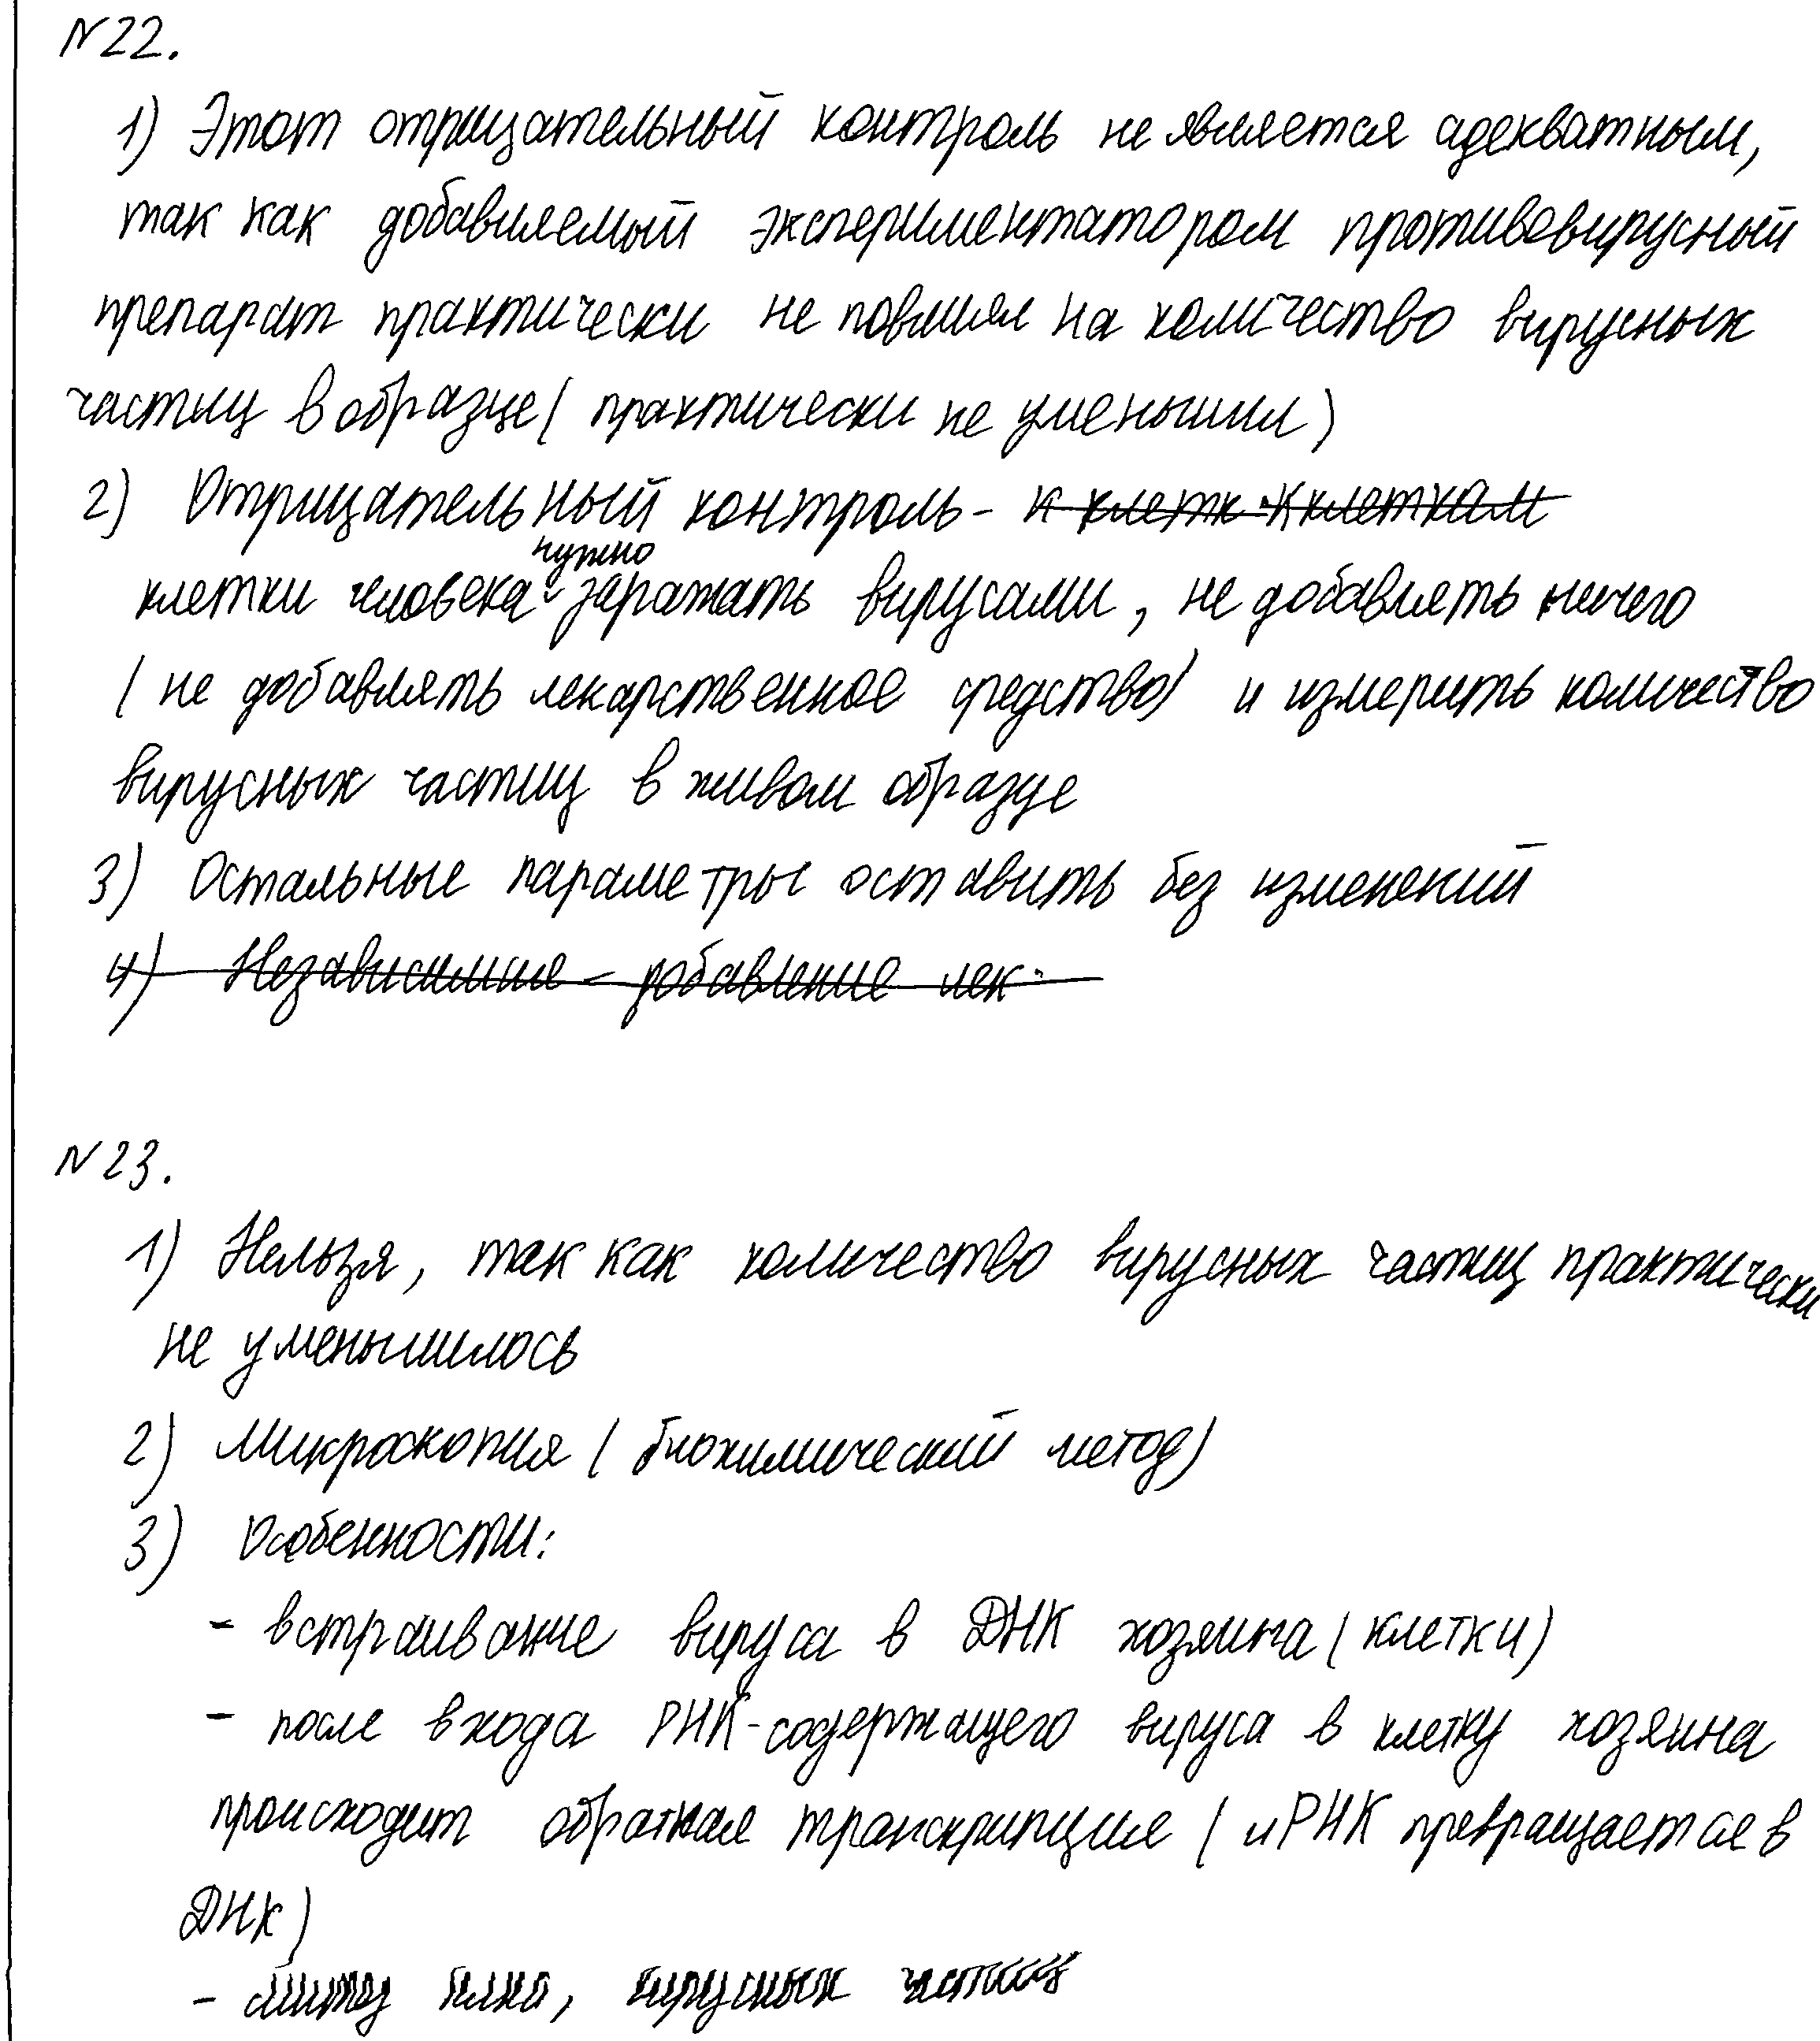 N22.
1) Этот отрицательный контроль не является адекватным,
так как добавляемый экспериментатором противовирусный
препарат практически не повлиял на количество вирусных
частиц в образце (практически не уменьшил)
2) Отрицательный контроль - к клетк к клеткам
нужно
клетки человека заражать вирусами, не добавлять ничего
(не добавлять лекарственное средство) и измерить количество
вирусных частиц в живом образце
3) Остальные параметры оставить без изменений
4) Независимые - добавление лек
N23.
1) Нельзя, так как количество вирусных частиц практически
не уменьшилось
2) Микроскопия (биохимический метод)
3) Особенности:
- встраивание вируса в ДНК хозяина (клетки)
- после входа РНК-содержащего вируса в клетку хозяина
происходит обратная транскрипция (иРНК превращается в
ДНК)
- синтез белка, вирусных частиц